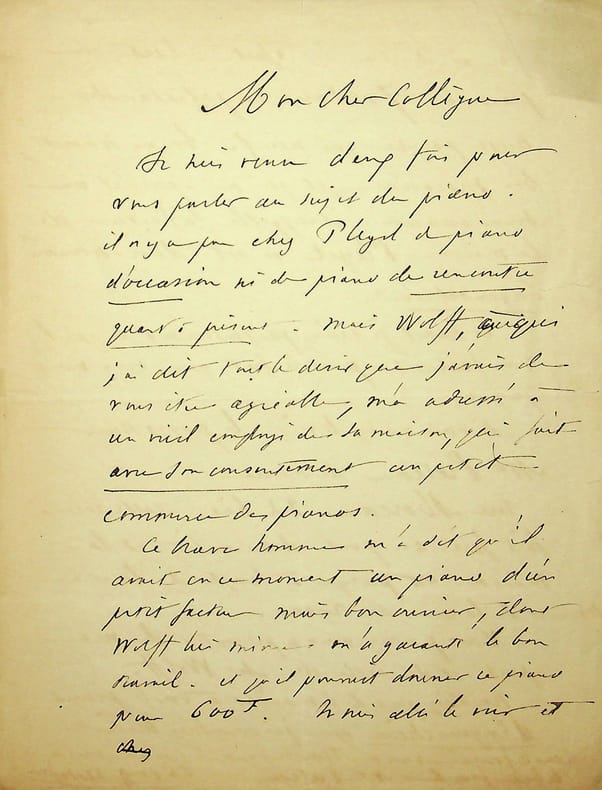 Mon cher Collègue
Je suis venu deux fois pour
vous parler au sujet du piano.
il n'y a pas chez Pleyel de piano
d'occasion ni de piano de rencontre
quant à présent. mais Wolff, à qui
j'ai dit tout le désir que j'avais de
vous être agréable, m'a adressé à
un vieil employé de sa maison, qui fait
avec son consentement un petit
commerce des pianos.
Ce brave homme m'a dit qu'il
avait en ce moment un piano d'un
petit facteur mais bon ouvrier, dont
Wolff lui même m'a garanti le bon
travail. et qu'il pourrait donner ce piano
pour 600f. Je suis allé le voir et
chez